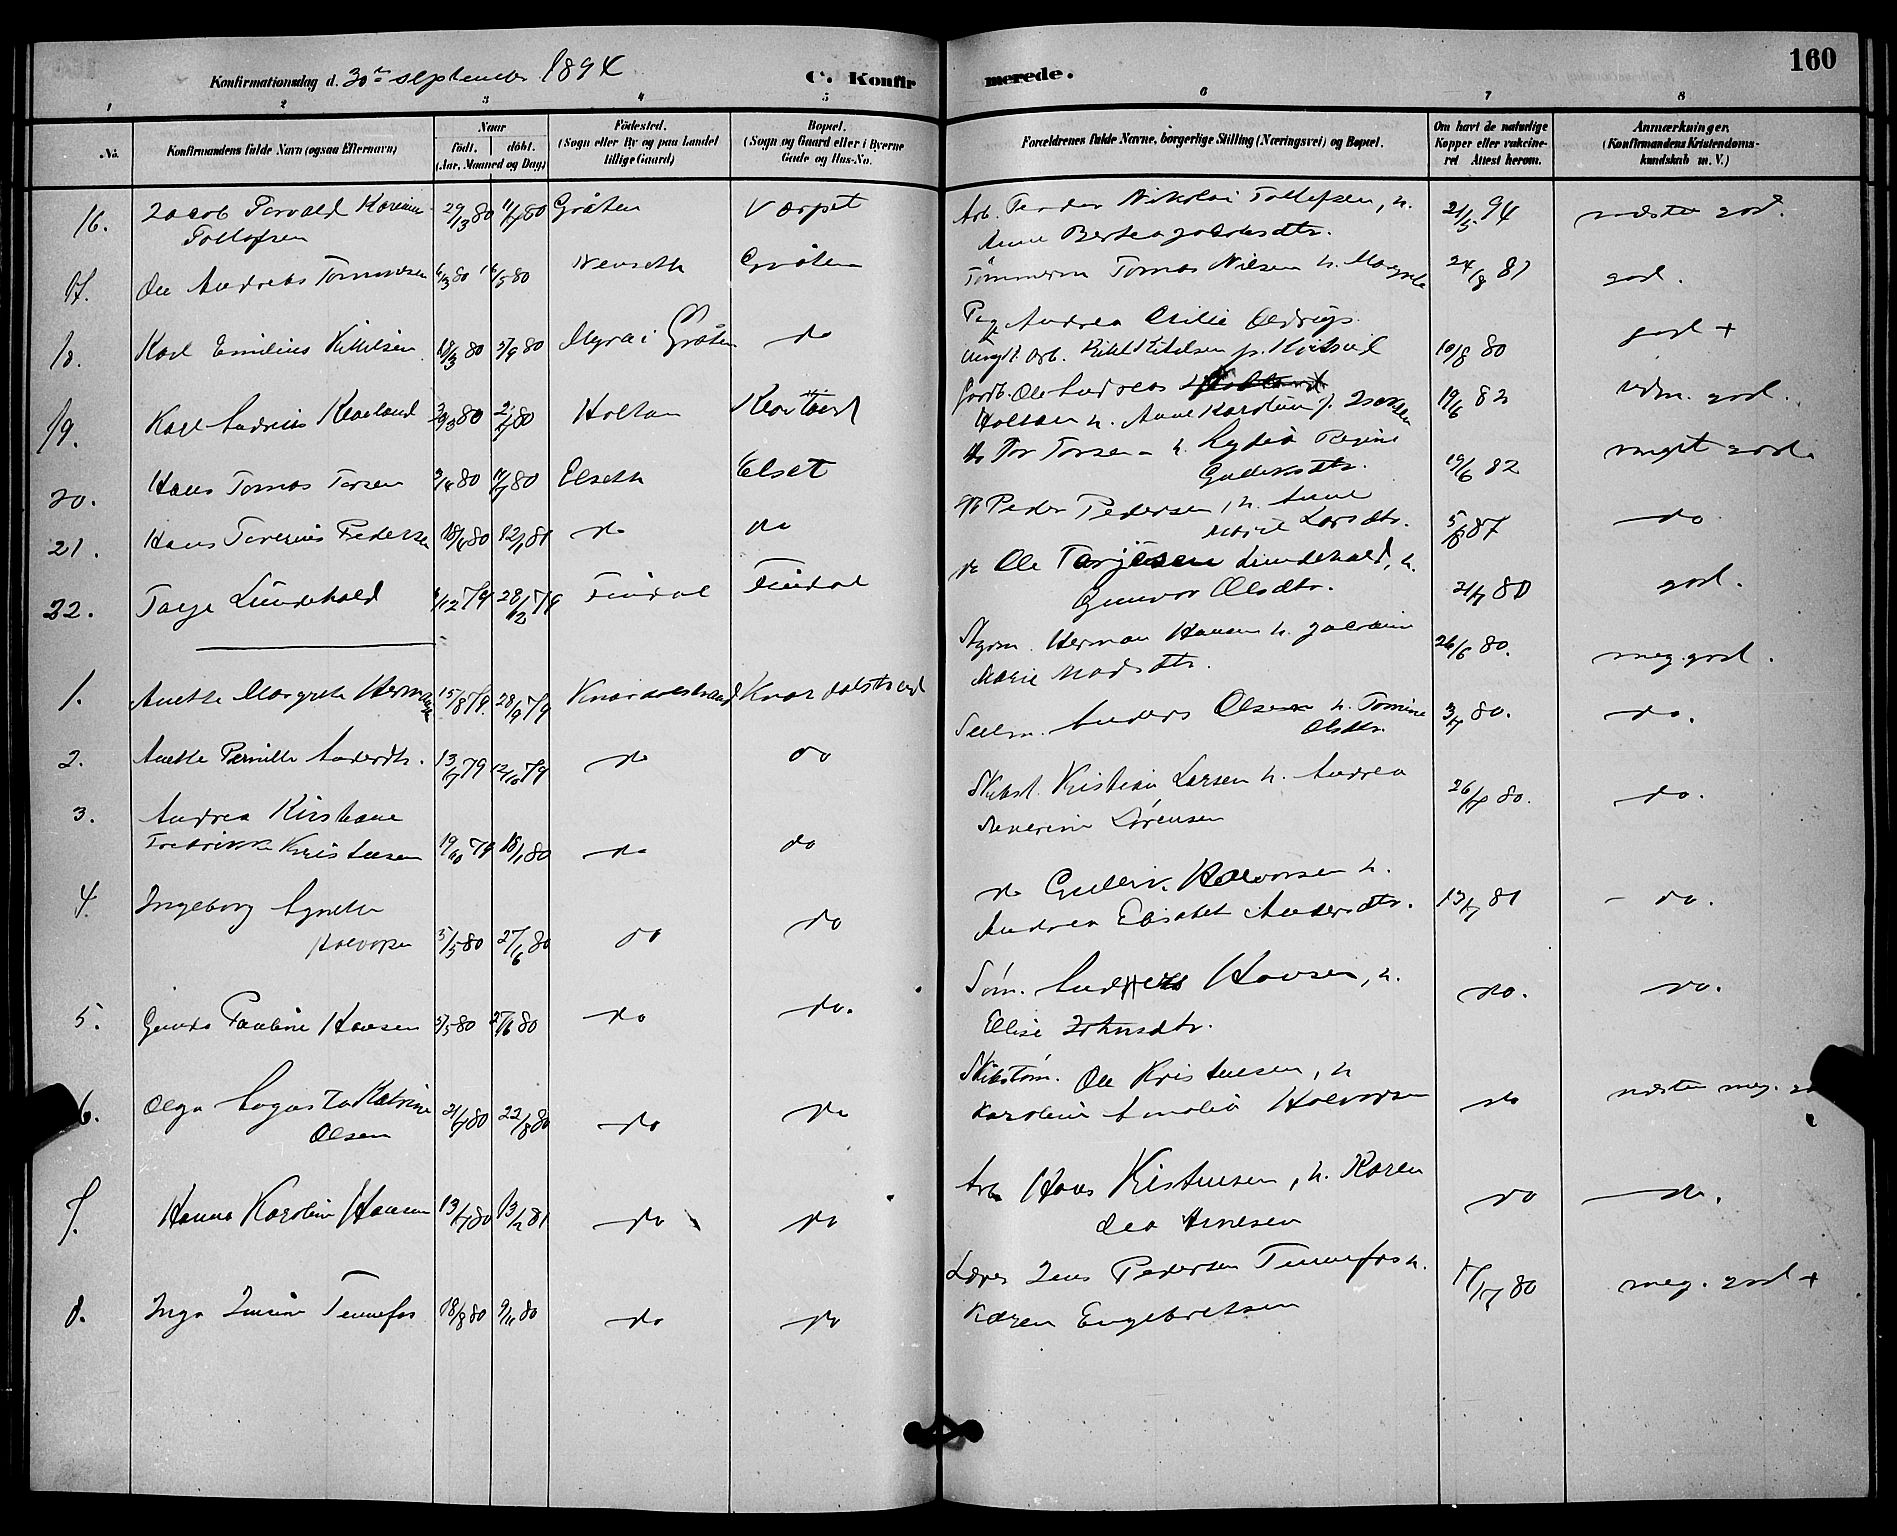 160
Konfirmationsdag d. 30te september 1894 C. Konfirmerede.
1 2 3 4 5 6 7 8
No.
Konfirmandens fulde Navn (ogsaa Efternavn)
Naar
födt. döbt.
(Aar, Maaned og Dag)
Födested.
(Sogn eller By og paa Landet
tillige Gaard)
Bopæl.
(Sogn og Gaard eller i Byerne
Gade og Hus-No.
Forældrenes fulde Navne, borgerlige Stilling (Næringsvei) og Bopæl.
Om havt de naturlige
Kopper eller vakcine-
ret Attest herom.
Anmærkninger.
(Konfirmandens Kristendoms-
kundskab m. V.)
16. Jacob Torvald
Tollefsen 29/3 80 11/7 80 Gråten Værpet Arb. Peder Nikolai Tollefsen, h.
Anne Bertea Jacobsdtr. 21/5 94 næsten god.
17. Ole Andreas Tomassen Nenseth Gråten Tömmerm Tomas Nilsen h.
24/8 81 god.
Andrea
18. Karl Emilius Kittilsen 18/3 80 5/9 80 Myra i Gråten do
Ungk. arb. 10/8 80 god +
19. Karl Andreas Klaveland Holtan Gaardb. Ole Andreas
Holtan h. Anne Karoline 19/6 82 udm. god.
20. Hans Tomas Torsen 11/7 80 Elseth Elset do Tor Torsen h. Lydia Regine
19/6 82 meget god.
21. Hans Severinus Pedersen 12/1 81 do do Peder Pedersen, h. Anne
Marie Larsdtr. 87 do
22. Tarje Lundekold 28/12 79 Findal Findal do Ole Tarjesen Lundekold, h.
Gunvor Olsdtr. 21/7 80 god.
1. Anette Margrete Hermansen 15/8 79. 28/9 79 Knardalstrand Knardalstrand Styrm. Herman Hansen h. Jacobine
Marie Madsdtr. 26/6 80. meg. god.
2. Anette Pernille Andersdtr. 13/7 79 12/10 79 do do Anders Olsen h. Tomine
Olsdtr. 3/7 80. do.
3. Andrea Kirstiane
Fredrikke Kristensen 19/10 79 18/1 80 do do Kristian Larsen h. Andrea
Severine Sörensen 26/7 80. do.
4. Ingeborg Agnethe
Halvorsen 5/5 80 27/6 80 do do do Gulleik Halvorsen h.
Andrea Elisabet Andersdtr. 13/7 81 - do.
5. Gunda Pauline Hansen 27/6 80 do do. Söm. Anders Hansen, h.
Elise Johnsdtr. do. do.
6. Olga Augusta Katrine
Olsen 21/7 80 22/8 80 do do Skibstöm. Ole Kristensen, h
Karoline Amalia Halvorsen do næsten meg. go
7. Hanna Karoline Hansen 13/7 80 13/2 81 do do Arb Hans Kistensen, h. Karen
Dea Arnesen do do.
8. Inga Tennefos 18/8 80 9/11 80 do do Lærer Jens Pedersen Tennefos h.
Karen Engebretsen 17/7 80 meg. god +